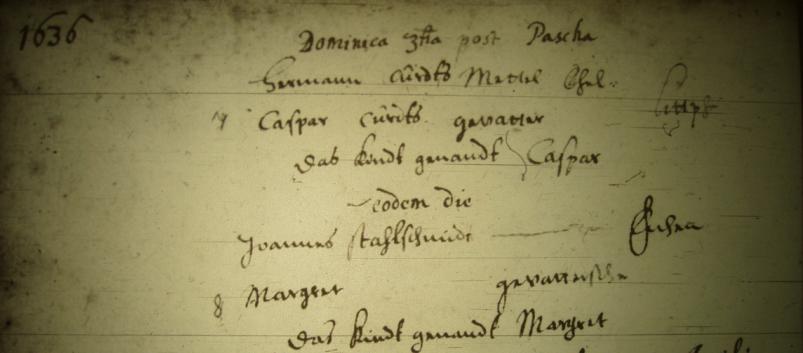 1636
Dominica 3tia post Pascha
Hermann Cürdts Mettel Ehel:
Caspar Cürdts gevatter
das kindt genandt Caspar
eodem die
Joannes Stahlschmidt
8 Margret gevattersche
das kindt genandt Margret